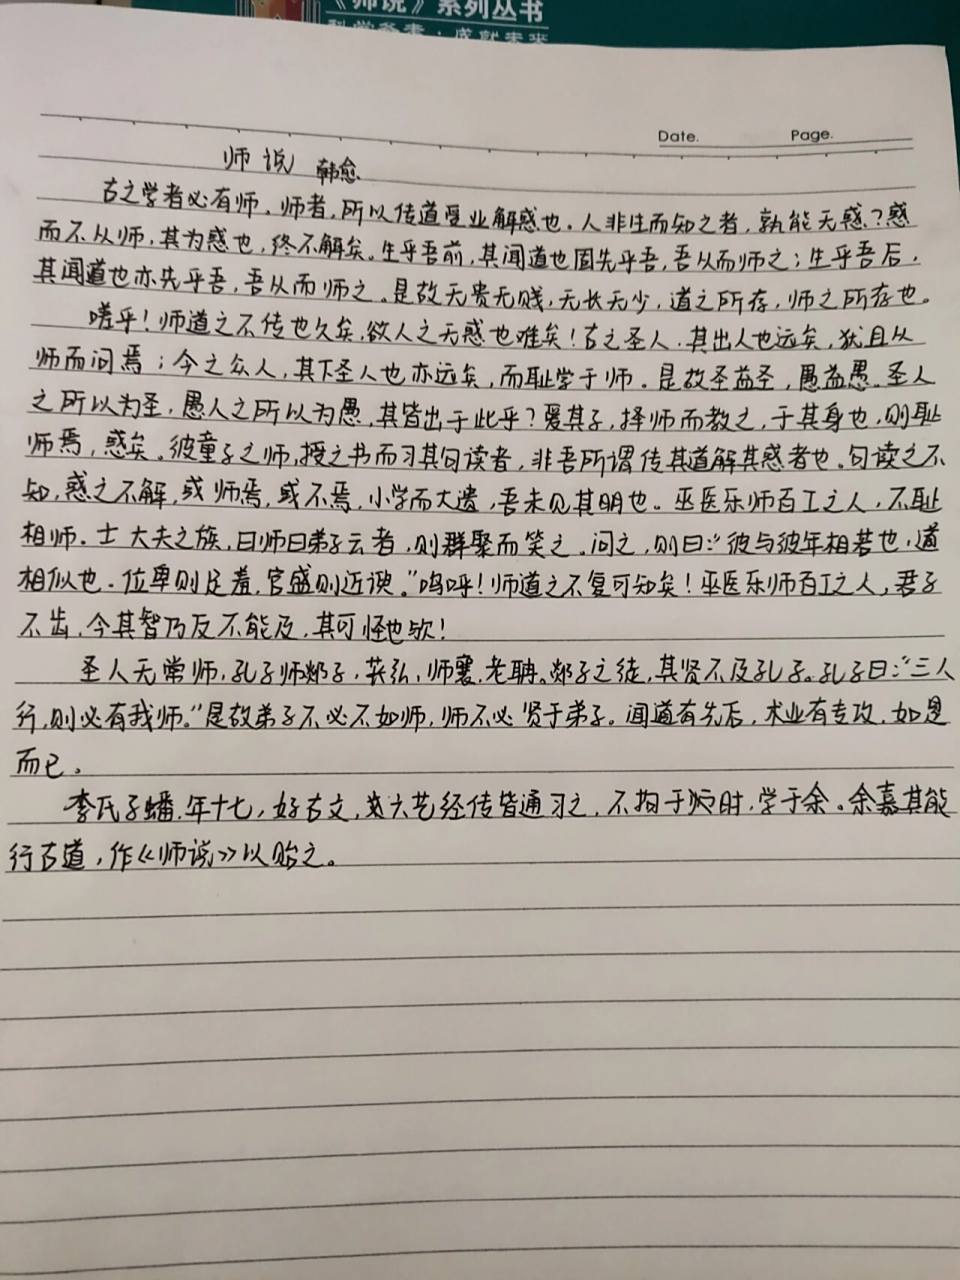 《师说》系列丛书
Date. Page.
师说 韩愈
古之学者必有师。师者,所以传道受业解惑也。人非生而知之者,孰能无惑?惑
而不从师,其为惑也,终不解矣。生乎吾前,其闻道也固先乎吾,吾从而师之;生乎吾后,
其闻道也亦先乎吾,吾从而师之。是故无贵无贱,无长无少,道之所存,师之所存也。
嗟乎!师道之不传也久矣,欲人之无惑也难矣!古之圣人,其出人也远矣,犹且从
师而问焉;今之众人,其下圣人也亦远矣,而耻学于师。是故圣益圣,愚益愚。圣人
之所以为圣,愚人之所以为愚,其皆出于此乎?爱其子,择师而教之,于其身也,则耻
师焉,惑矣。彼童子之师,授之书而习其句读者,非吾所谓传其道解其惑者也。句读之不
知,惑之不解,或师焉,或不焉,小学而大遗,吾未见其明也。巫医乐师百工之人,不耻
相师。士大夫之族,曰师曰弟子云者,则群聚而笑之。问之,则曰:“彼与彼年相若也,道
相似也。位卑则足羞,官盛则近谀。”呜呼!师道之不复可知矣!巫医乐师百工之人,君子
不齿,今其智乃反不能及,其可怪也欤!
圣人无常师,孔子师郯子,苌弘,师襄,老聃。郯子之徒,其贤不及孔子。孔子曰:“三人
行,则必有我师。”是故弟子不必不如师,师不必贤于弟子。闻道有先后,术业有专攻,如是
而已。
李氏子蟠,年十七,好古文,六艺经传皆通习之,不拘于时,学于余。余嘉其能
行古道,作《师说》以贻之。